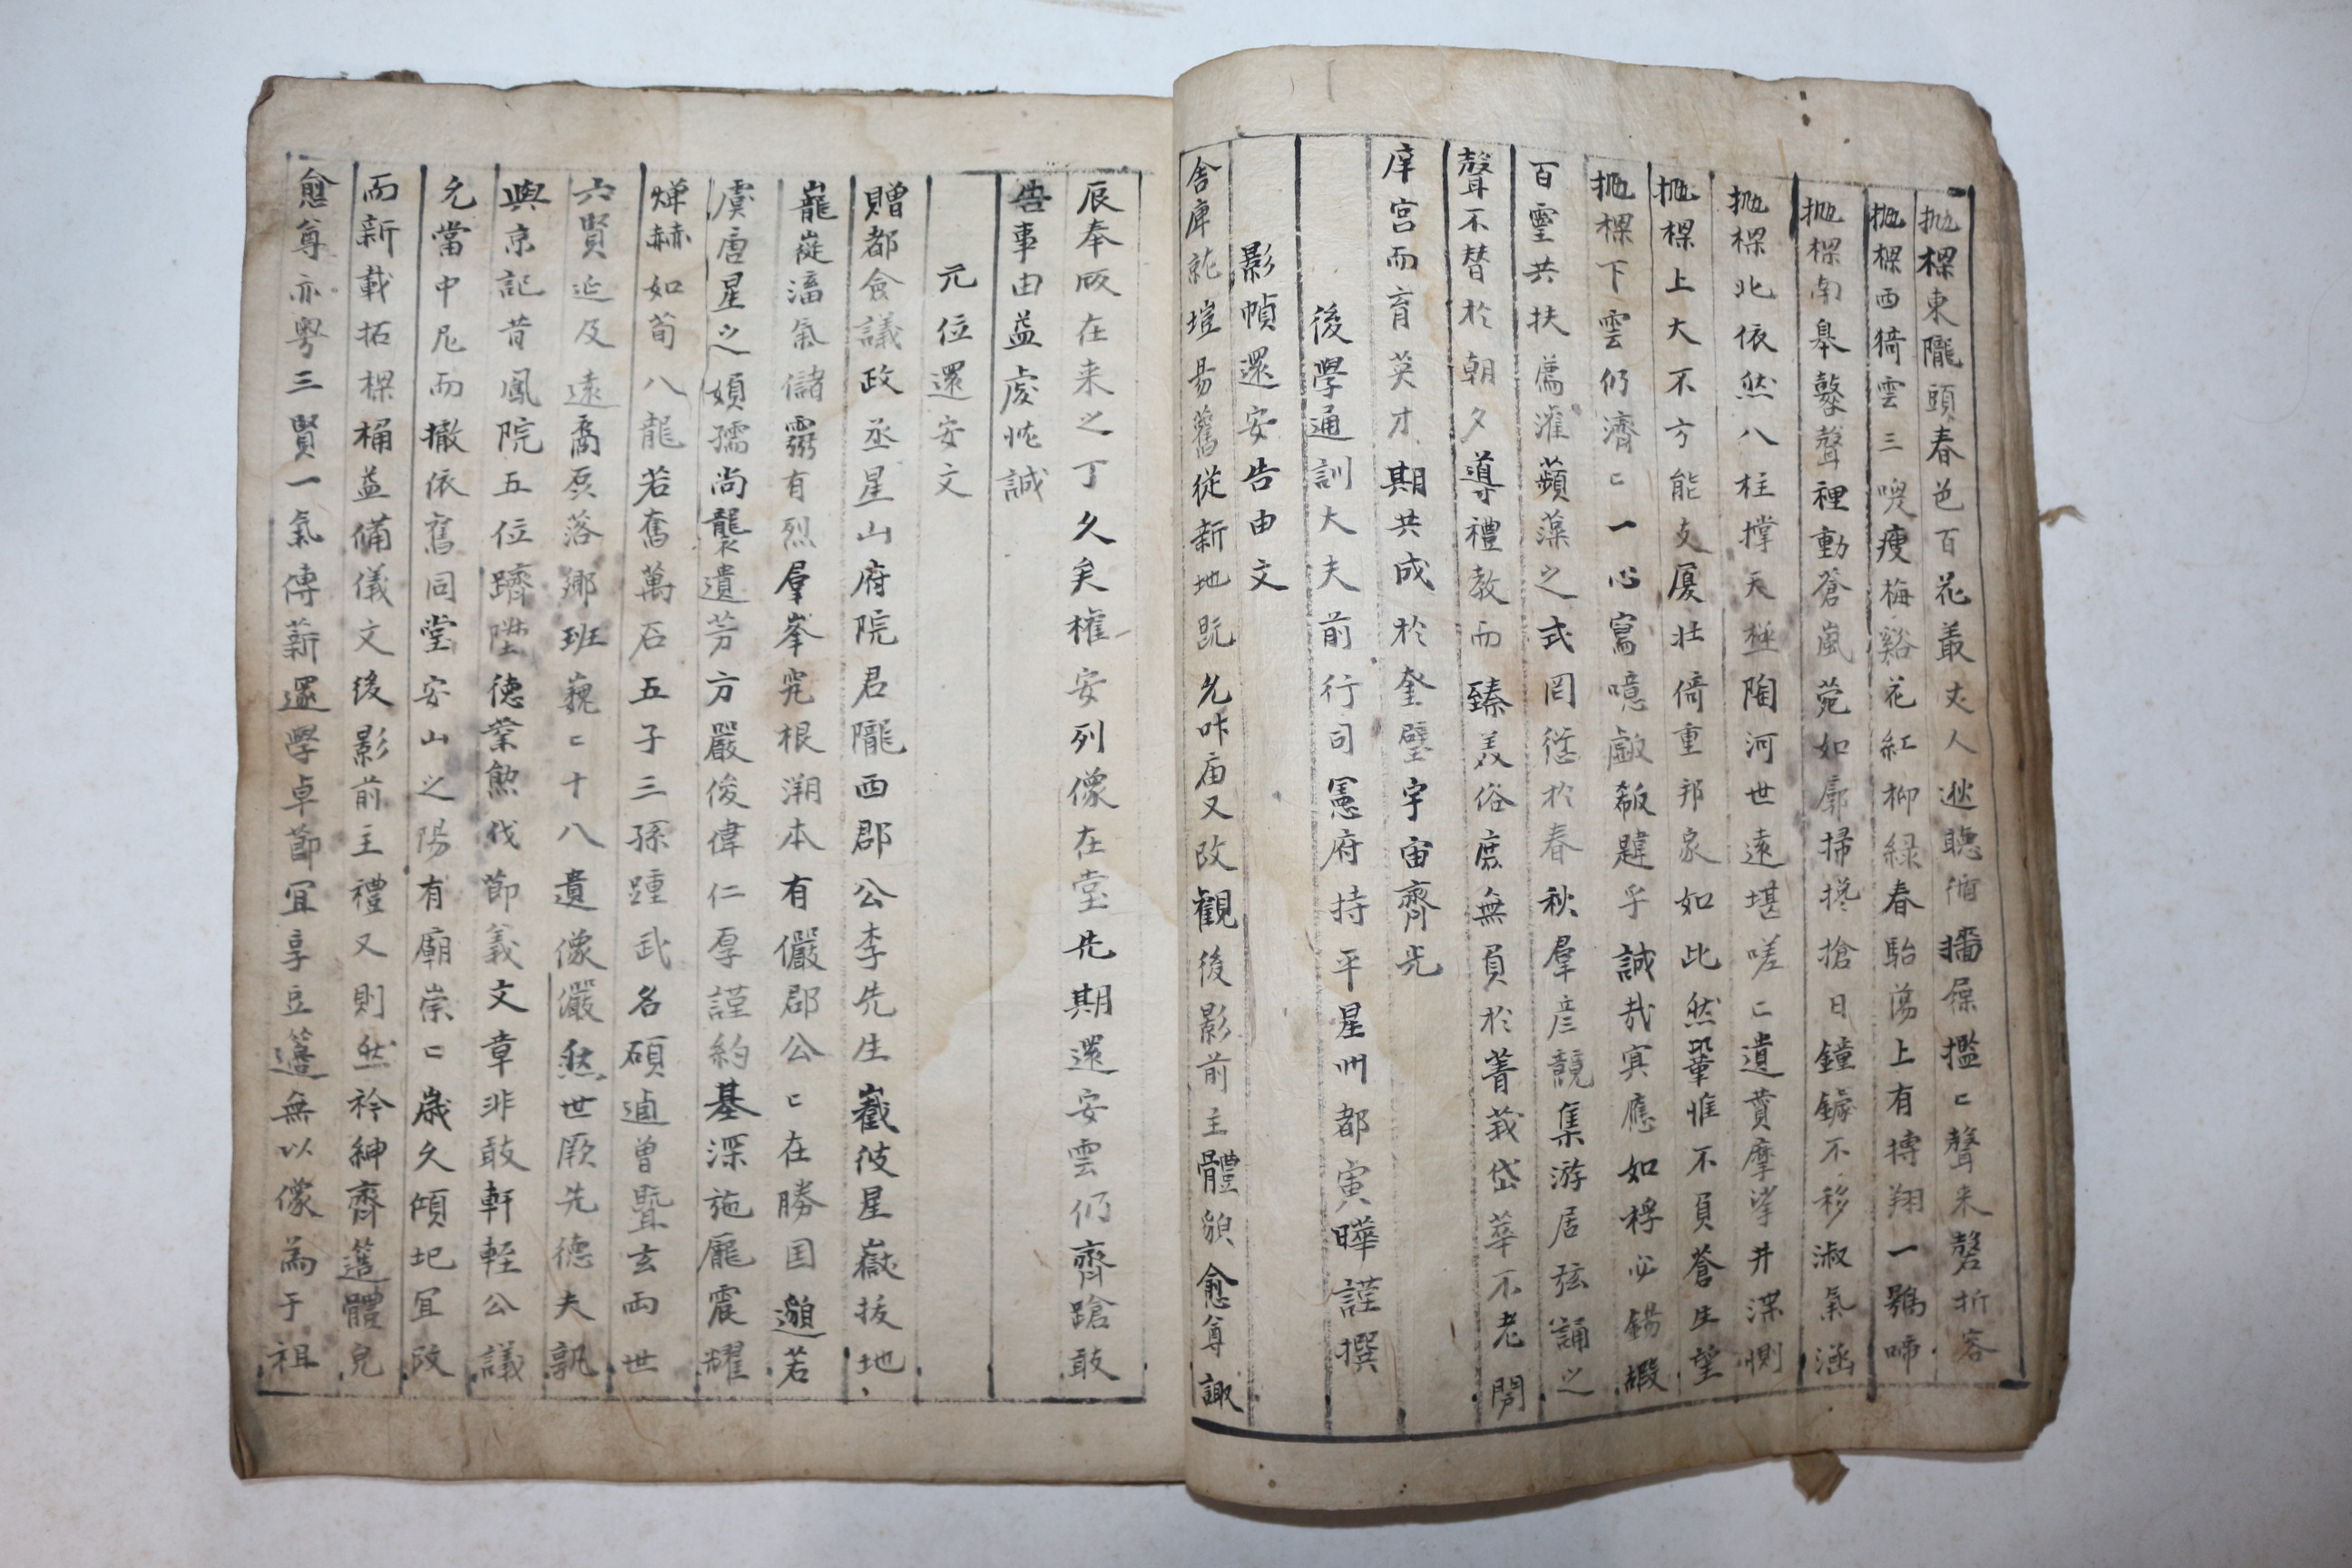 抛樑東隴頭春色百花叢丈人逖聽循墻傴㩜〻聲来磬折容
抛樑西猗雲三嗅瘦梅谿花紅柳緑春駘蕩上有摶翔一鶚啼
抛樑南皐鼛聲裡動蒼嵐菀如廓掃搀搶日鐘鐻不移淑氣涵
抛樑北依然八柱撑天極陶河世遠堪嗟〻遺蕡摩挲井渫惻
抛樑上大不方能支厦壯倚重邦家如此然鞏惟不負蒼生望
抛樑下雲仍濟〻一心寫噫歔韙乎誠哉冥應如桴必錫嘏
百霊共扶薦潅蘋藻之式罔愆於春秋羣彦競集游居弦誦之
聲不替於朝夕導禮教而臻美俗庶無負於菁莪岱華不老閉
庠宮而育英才期共成於奎璧宇宙齊光
後學通訓大夫前行司憲府持平星州都寅曄謹撰
影幀還安告由文
舍庫就塏易舊從新地旣允咋庙又改觀後影前主體貌愈尊諏
辰奉版在来之丁久矣權安列像在堂先期還安雲仍齊蹌敢
告事由益虔忱誠
元位還安文
贈都僉議政丞星山府院君隴西郡公李先生巀彼星嶽拔地
巃嵷滀氣儲靈有烈羣峯究根溯本有儼郡公〻在勝国邈若
虞唐星之頍孺尚襲遺芳方嚴俊偉仁厚謹約基深施厖震耀
煇赫如荀八龍若奮萬石五子三孫踵武名碩逌曾曁玄両世
六賢迤及遠裔磊落鄕班巍〻十八遺像儼然世厥先德夫孰
與京記昔鳳院五位躋陞德業勲伐節義文章非敢軒輊公議
允當中尼而撤依舊同堂安山之陽有廟崇〻歳久傾圮冝改
而新載拓樑桷益備儀文後影前主禮又則然衿紳齊簉體皃
愈尊亦粤三賢一氣傳薪邃學卓節冝享豆籩無以像為于祖